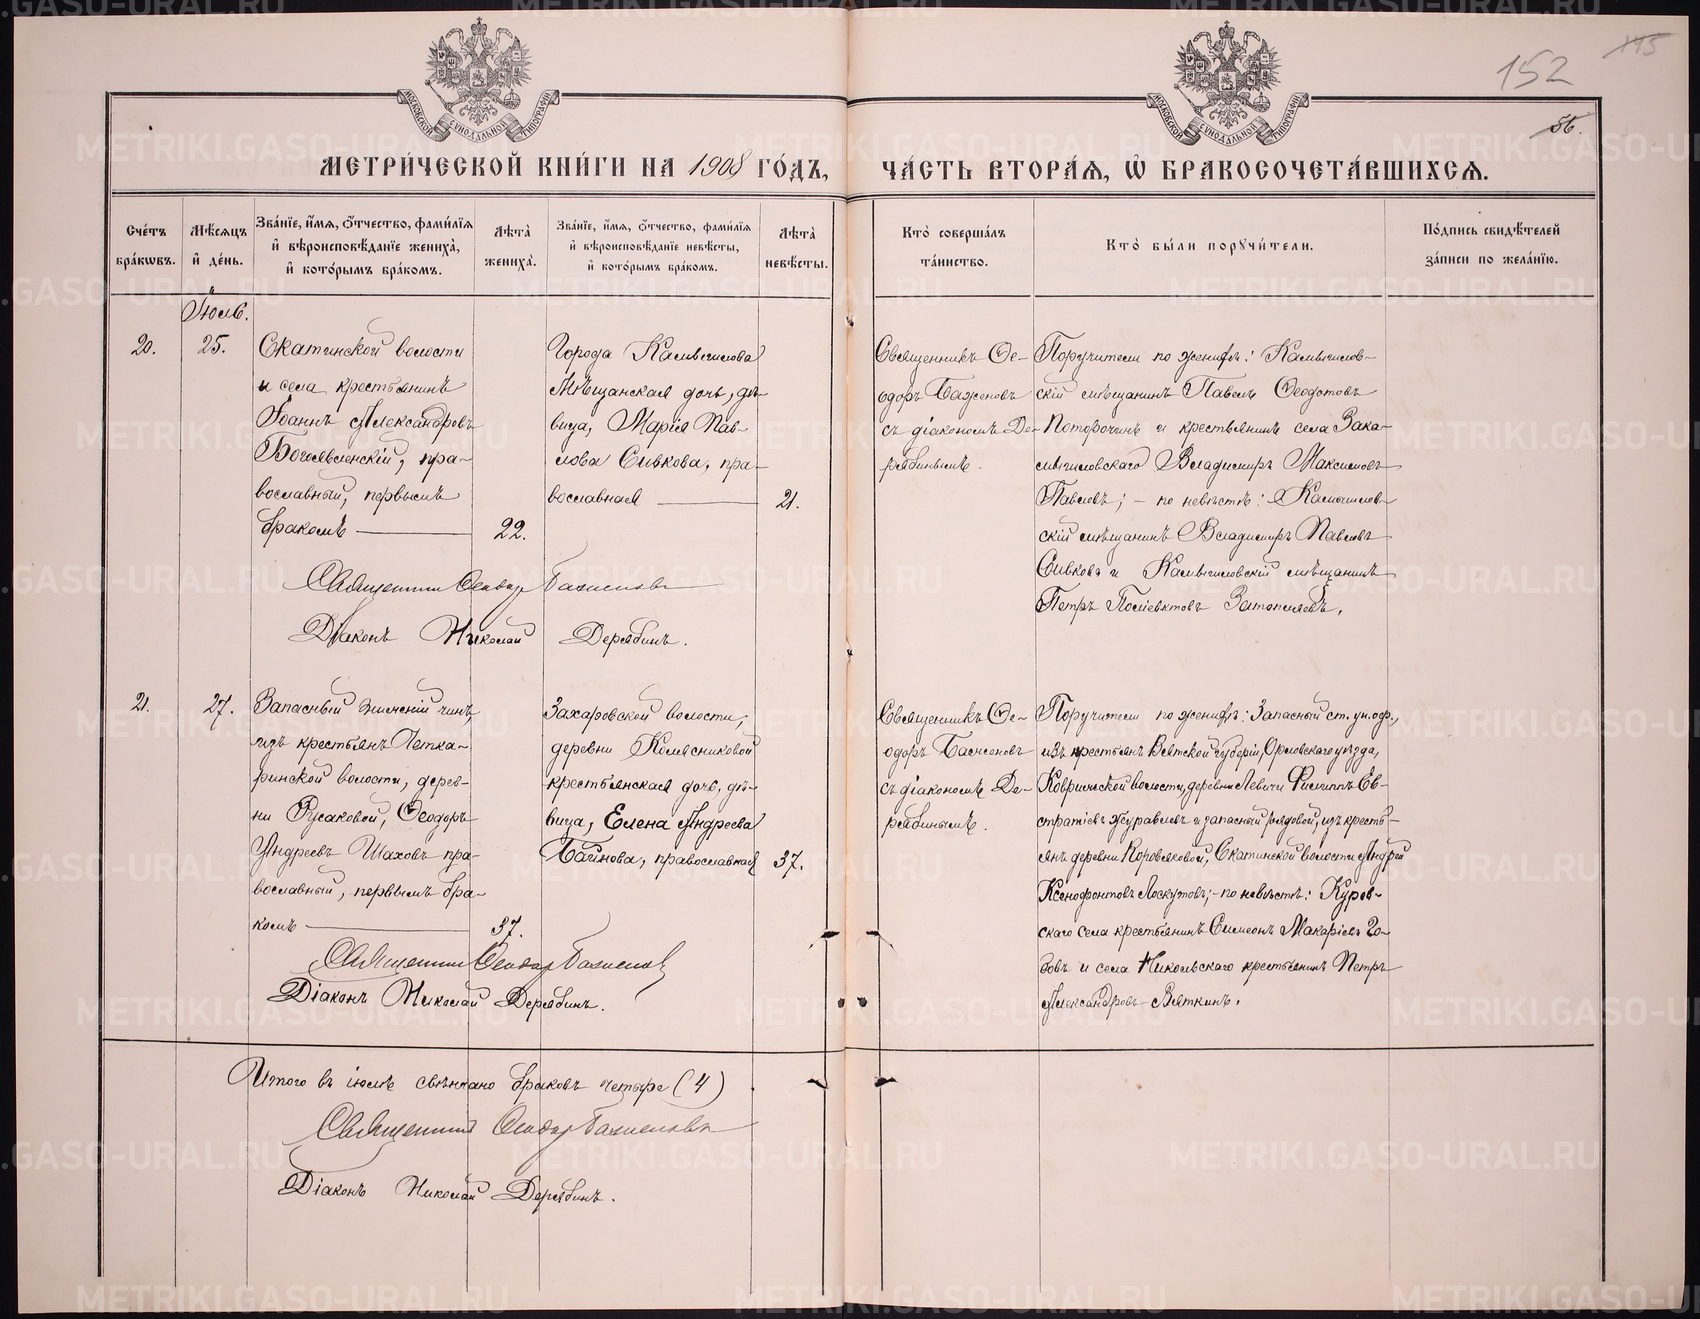 152
МОСКОВСКОЙ СѴНОДАЛЬНОЙ ТИПОГРАФІИ
МОСКОВСКОЙ СѴНОДАЛЬНОЙ ТИПОГРАФІИ
56.
МЕТРИ́ЧЕСКОЙ КНИ́ГИ НА 1908 ГО́ДЪ,
ЧА́СТЬ ВТОРА́Ѧ, Ѡ҆ БРАКОСОЧЕТА́ВШИХСѦ.
Сче́тъ бра́кѡвъ.
Мѣ́сѧцъ и҆ де́нь.
Зва́нїе, и҆́мѧ, ѻ҆́тчество, фами́лїѧ
и҆ вѣроисповѣ́данїе жениха̀,
и҆ кото́рымъ бра́комъ.
Лѣта̀ жениха̀.
Зва́нїе, и҆́мѧ, ѻ҆́тчество, фами́лїѧ
и҆ вѣроисповѣ́данїе невѣ́сты,
и҆ кото́рымъ бра́комъ.
Лѣта̀ невѣ́сты.
Кто̀ соверша́лъ
та́инство.
Кто̀ бы́ли порꙋчи́тели.
По́дпись свидѣ́телей
за́писи по жела́нїю.
Іюль.
20.
25.
Скатинской волости
и села крестьянинъ
Іоаннъ Александровъ
Богоявленскій, пра-
вославный, первымъ
бракомъ
22.
Города Камышлова
Мѣщанская дочь, дѣ-
вица, Марія Пав-
лова Сивкова, пра-
вославная
21.
Священникъ Ѳе-
одоръ Баженовъ
съ діакономъ Де-
рябинымъ.
Поручители по женихѣ: Камышлов-
скій мѣщанинъ Павелъ Ѳеодотовъ
Поторочинъ и крестьянинъ села Зака-
мышловскаго Владимиръ Максимовъ
Павловъ; – по невѣстѣ: Камышлов-
скій мѣщанинъ Владимиръ Павловъ
Сивковъ и Камышловскій мѣщанинъ
Петръ Поліевктовъ
Священникъ Ѳеодоръ Баженовъ
Діаконъ Николай Дерябинъ.
21.
27.
Запасный нижній чинъ,
изъ крестьянъ Четка-
ринской волости, дерев-
ни Русаковой, Ѳеодоръ
Андреевъ Шаховъ пра-
вославный, первымъ бра-
комъ
37.
Захаровской волости,
деревни Колясниковой
крестьянская дочь, дѣ-
вица, Елена Андреева
Баинова, православная
37.
Священникъ Ѳе-
одоръ Баженовъ
съ діакономъ Де-
рябинымъ.
Поручители по женихѣ: Запасный ст. ун. оф.,
изъ крестьянъ Вятской губерніи, Орловскаго уѣзда,
Коврижской волости, деревни Левичи Филиппъ Ев-
стратіевъ Журавлевъ и запасный рядовой, изъ кресть-
янъ деревни Коровяковой, Скатинской волости Андрей
Ксенофонтовъ Лоскутовъ; – по невѣстѣ: Куров-
скаго села крестьянинъ Симеонъ Макаріевъ Зо-
бовъ и села Никольскаго крестьянинъ Петръ
Александровъ Вяткинъ.
Священникъ Ѳеодоръ Баженовъ
Діаконъ Николай Дерябинъ.
Итого въ іюлѣ свѣнчано браковъ четыре (4)
Священникъ Ѳеодоръ Баженовъ
Діаконъ Николай Дерябинъ.
METRIKI.GASO-URAL.RU